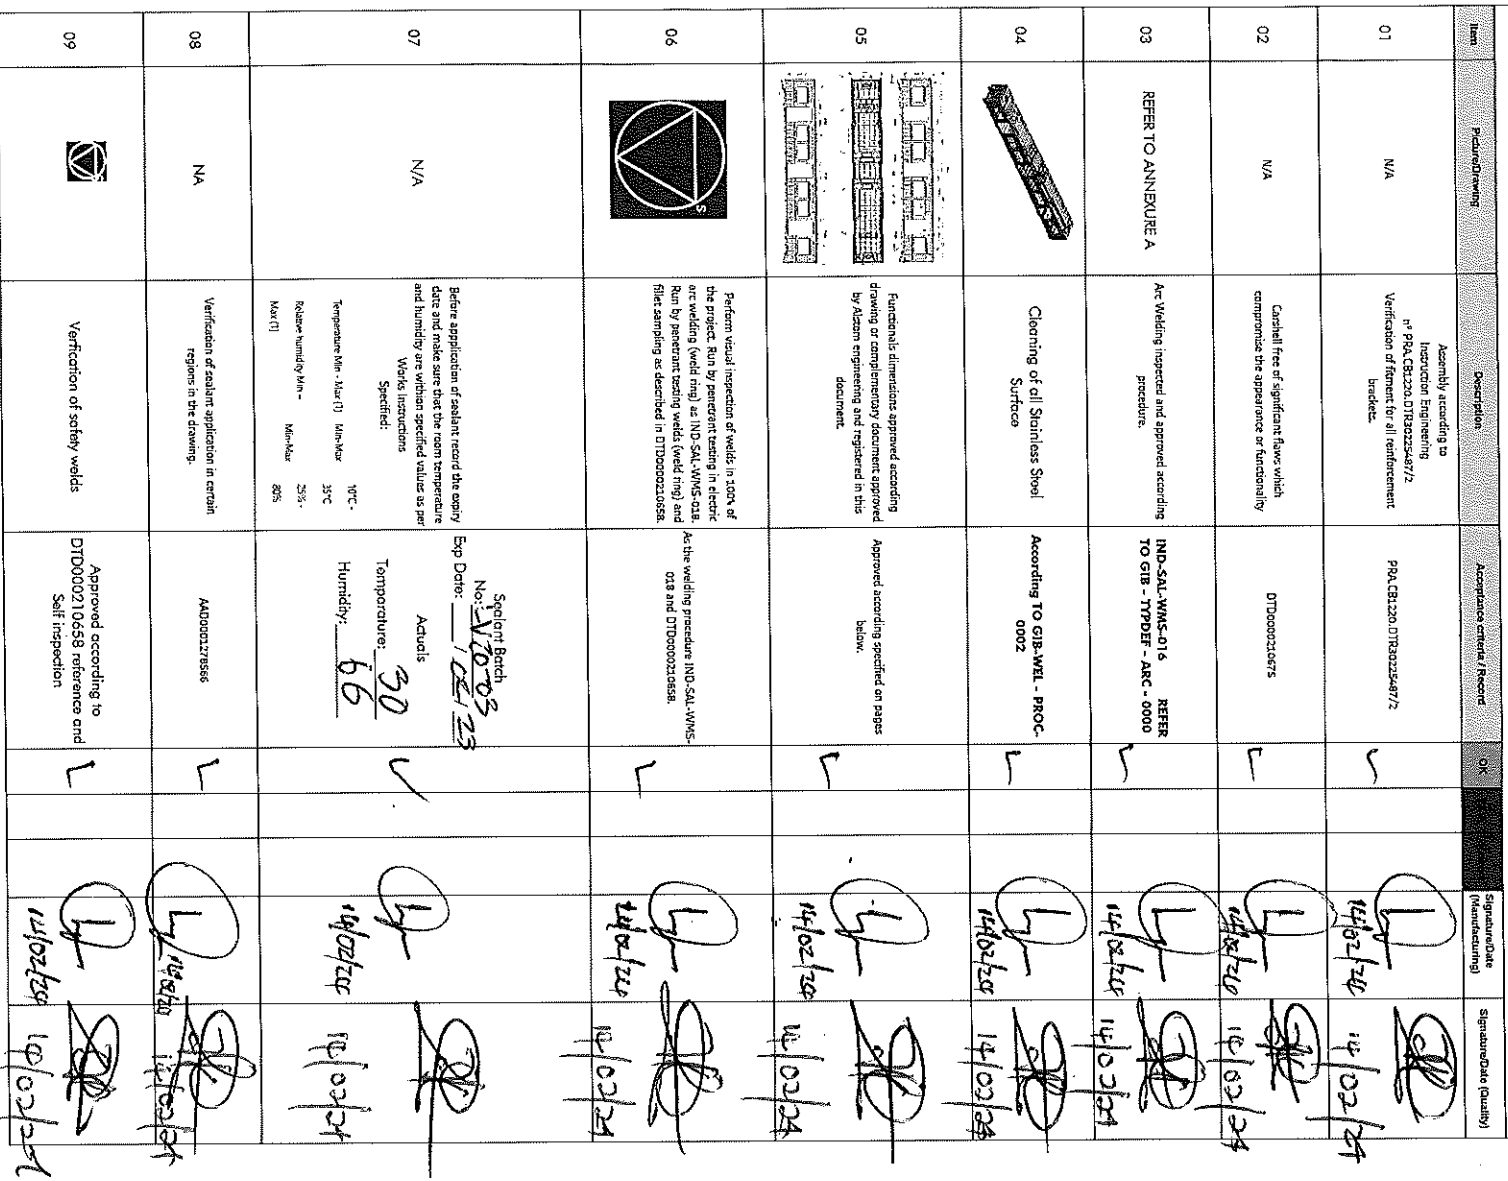 Item
Picture/Drawing
Description
Acceptance criteria / Record
OK
Signature/Date
(Manufacturing)
Signature/Date (Quality)
01
N/A
Assembly according to
Instruction Engineering
nº PRA.CB1220.DTR30225487/2
Verification of filament for all reinforcement
brackets.
PRA.CB1220.DTR30225487/2
14/02/24
14/02/24
02
N/A
Carshell free of significant flaws which
compromise the appearance or functionality
DTD0000210675
14/02/24
14/02/24
03
REFER TO ANNEXURE A
Arc Welding inspected and approved according
procedure.
IND-SAL-WMS-016 REFER
TO GIB - TYPDEF - ARC - 0000
14/02/24
14/02/24
04
Cleaning of all Stainless Steel
Surface
According TO GIB-WEL - PROC-
0002
14/02/24
14/02/24
05
Functionals dimensions approved according
drawing or complementary document approved
by Alstom engineering and registered in this
document.
Approved according specified on pages
below.
14/02/24
14/02/24
06
S
Perform visual inspection of welds in 100% of
the project. Run by penetrant testing in electric
arc welding (weld ring) as IND-SAL-WMS-018.
Run by penetrant testing welds (weld ring) and
fillet sampling as described in DTD0000210658.
As the welding procedure IND-SAL-WMS-
018 and DTD0000210658.
14/02/24
14/02/24
07
N/A
Before appplication of sealant record the expiry
date and make sure that the room temperature
and humidity are withion specified values as per
Works Instructions
Specified:
Temperature Min - Max (1) Min-Max 10°C -
35°C
Relative humidity Min - Min-Max 25% -
Max (1) 80%
Sealant Batch
No:
Exp Date:
Actuals
Temparature: 30
Humidity: 66
14/02/24
14/02/24
08
NA
Verification of sealant application in certain
regions in the drawing.
AAD0001278566
14/02/24
09
Verfication of safety welds
Approved according to
DTD000210658 reference and
Self inspection
14/02/24